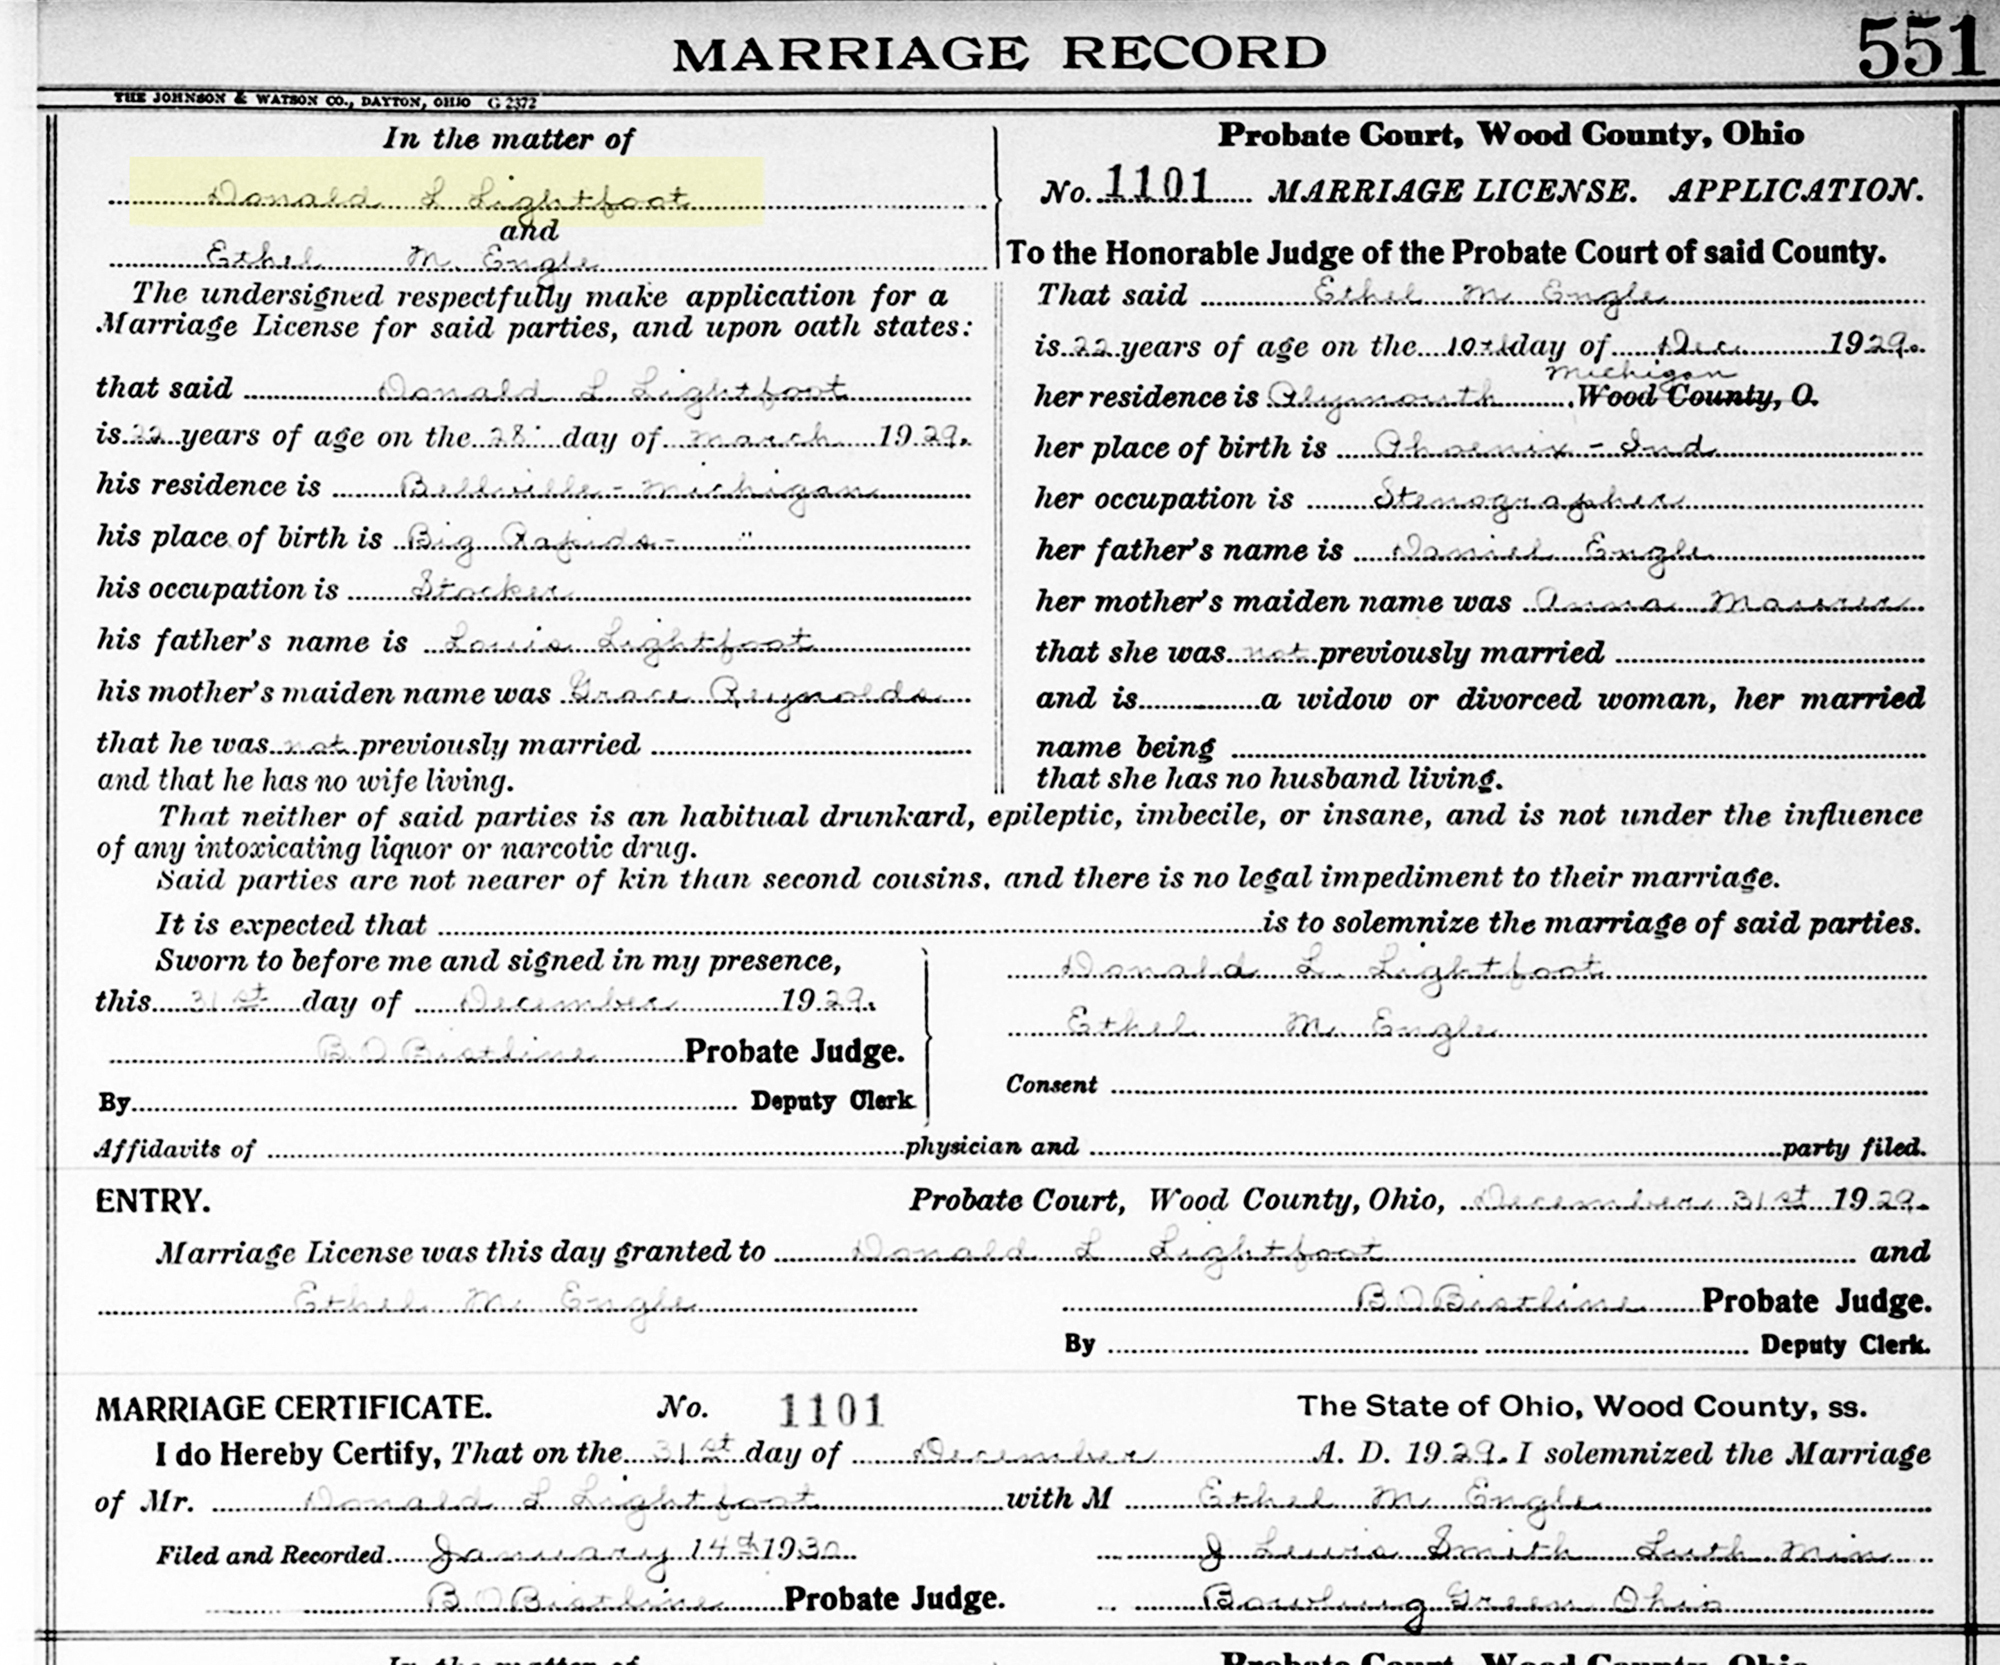 MARRIAGE RECORD 551
THE JOHNSON & WATSON CO., DAYTON, OHIO G 2372
In the matter of
Donald L Lightfoot
and
Ethel M. Engle
The undersigned respectfully make application for a
Marriage License for said parties, and upon oath states:
that said Donald L. Lightfoot
is 22 years of age on the 28" day of March 1929.
his residence is Bellville - Michigan
his place of birth is Big Rapids - "
his occupation is Stocker
his father's name is Louis Lightfoot
his mother's maiden name was Grace Reynolds
that he was not previously married
and that he has no wife living.
Probate Court, Wood County, Ohio
No. 1101 MARRIAGE LICENSE. APPLICATION.
To the Honorable Judge of the Probate Court of said County.
That said Ethel M Engle
is 22 years of age on the 10th day of Dec. 1929.
Michigan
her residence is Plymouth Wood County, O.
her place of birth is Phoenix - Ind
her occupation is Stenographer
her father's name is Daniel Engle
her mother's maiden name was Anna
that she was not previously married
and is a widow or divorced woman, her married
name being
that she has no husband living.
That neither of said parties is an habitual drunkard, epileptic, imbecile, or insane, and is not under the influence
of any intoxicating liquor or narcotic drug.
Said parties are not nearer of kin than second cousins, and there is no legal impediment to their marriage.
It is expected that is to solemnize the marriage of said parties.
Sworn to before me and signed in my presence,
this 31st day of December 1929.
B O Bistline Probate Judge.
By Deputy Clerk
Donald L. Lightfoot
Ethel M. Engle
Consent
Affidavits of physician and party filed.
ENTRY. Probate Court, Wood County, Ohio, December 31st 1929.
Marriage License was this day granted to Donald L Lightfoot and
Ethel M. Engle B O Bistline Probate Judge.
By Deputy Clerk.
MARRIAGE CERTIFICATE. No. 1101 The State of Ohio, Wood County, ss.
I do Hereby Certify, That on the 31st day of December A. D. 1929. I solemnized the Marriage
of Mr. Donald L Lightfoot with M Ethel M. Engle
Filed and Recorded January 14th 1930 J Lewis Smith Luth Min
B O Bistline Probate Judge. Bowling Green Ohio
In the matter of Probate Court, Wood County, Ohio